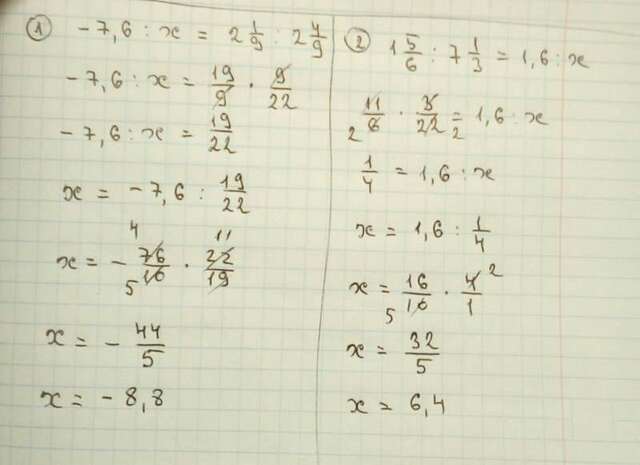 ① -7,6 : x = 2 1/9 : 2 4/9
-7,6 : x = 19/9 · 9/22
-7,6 : x = 19/22
x = -7,6 : 19/22
4 11
x = - 76/10 · 22/19
5
x = - 44/5
x = -8,8
② 1 5/6 : 7 1/3 = 1,6 : x
11/6 · 3/22 = 1,6 : x
2 2
1/4 = 1,6 : x
x = 1,6 : 1/4
x = 16/10 · 4/1 2
5
x = 32/5
x = 6,4